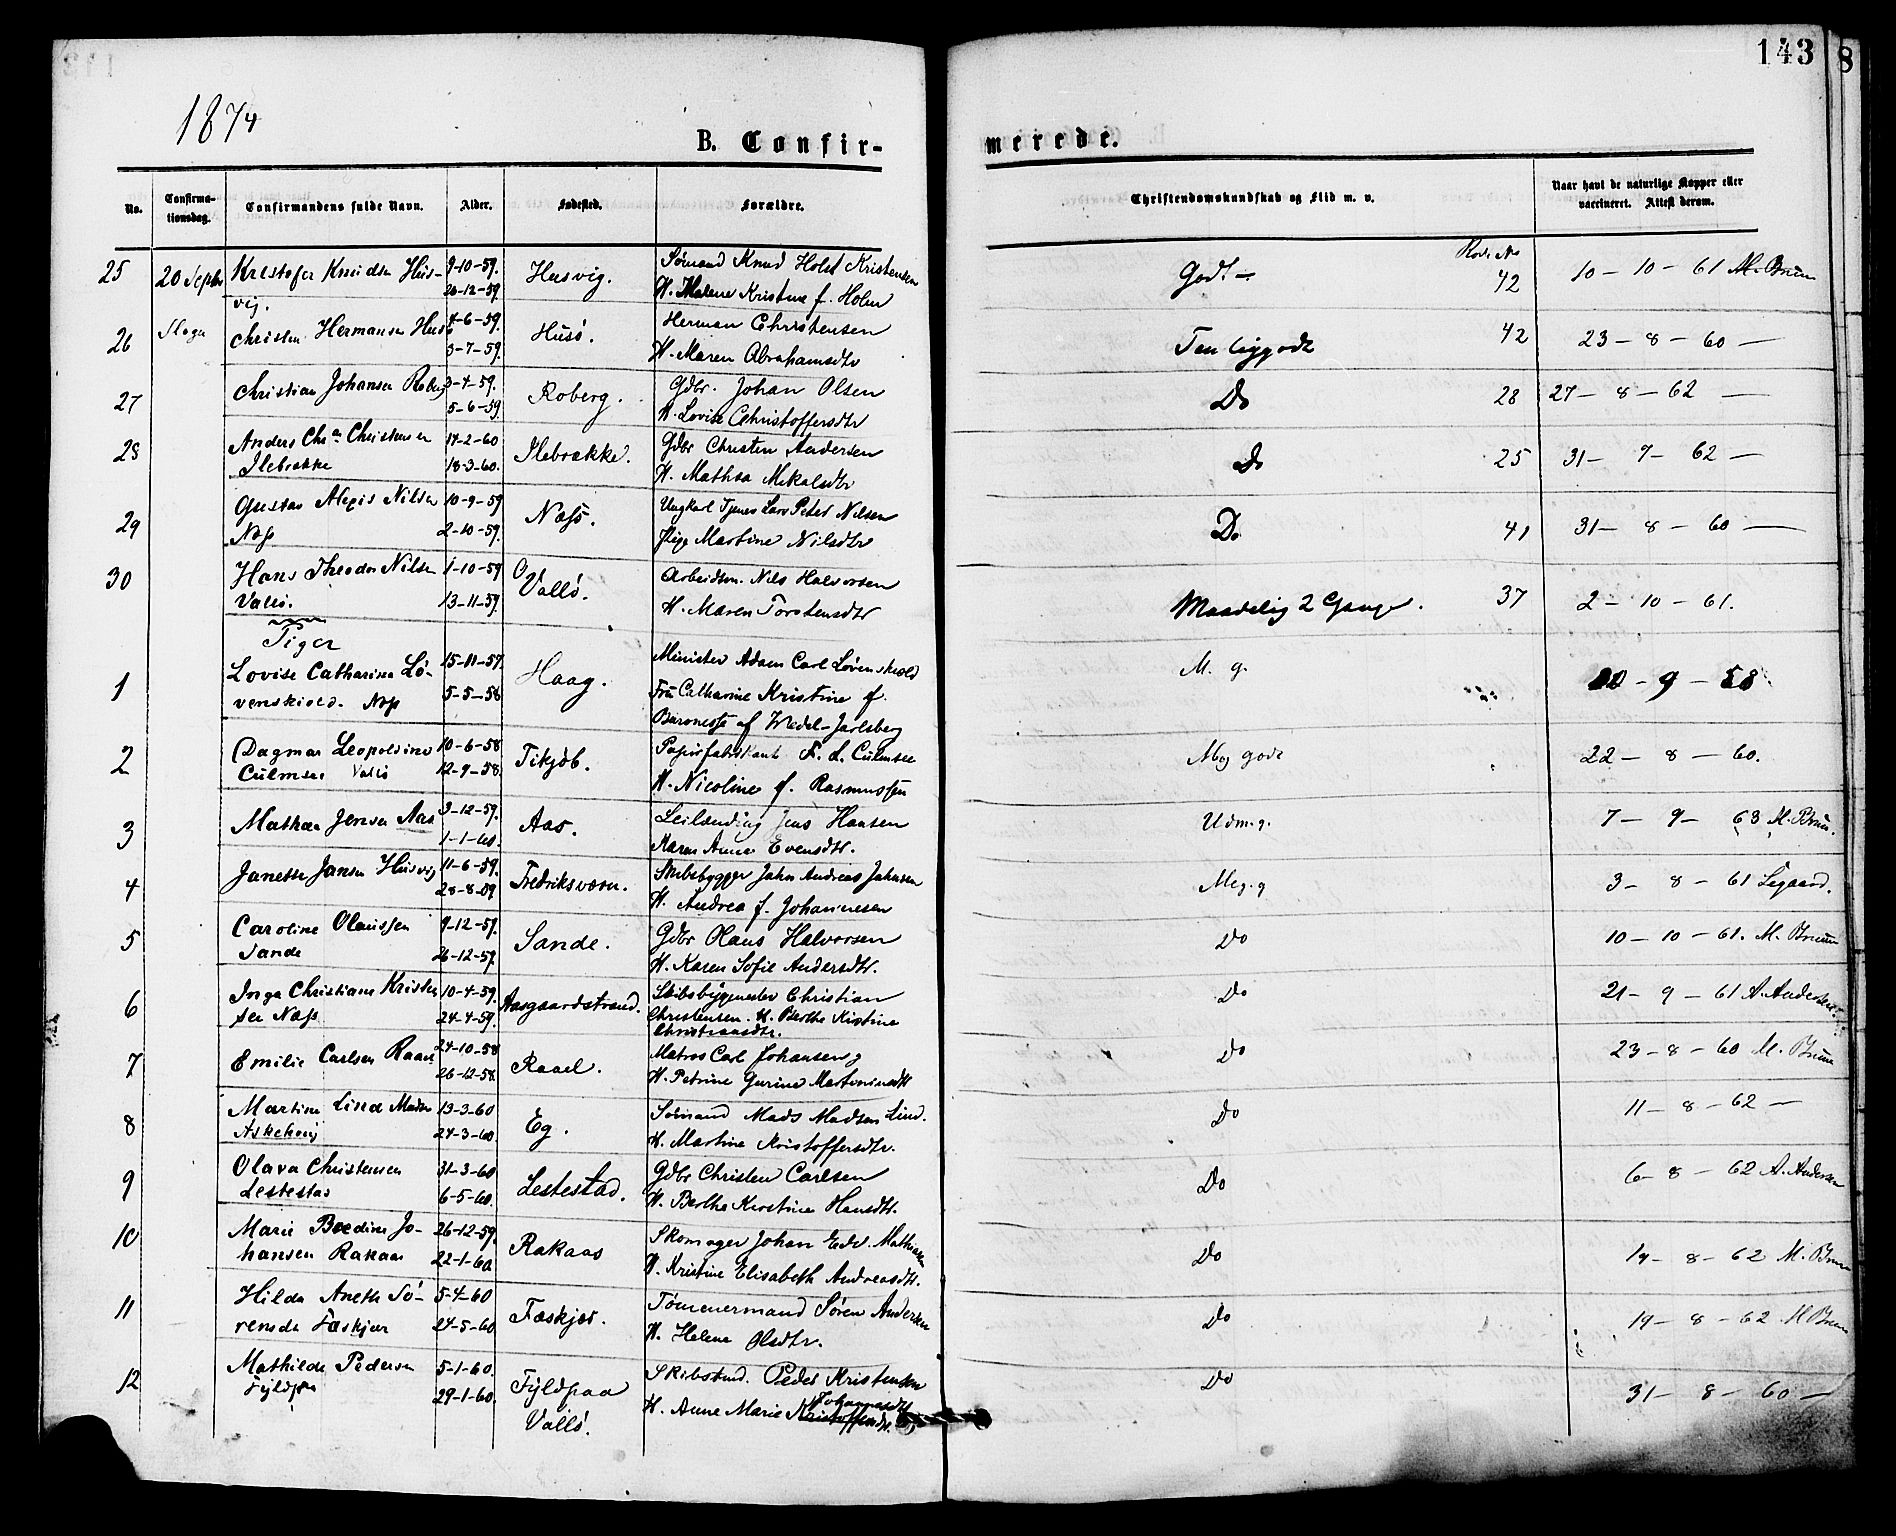 143
8
1874
B. Confir-
merede.
No.
Confirma-
tionsdag.
Confirmandens fulde Navn.
Alder.
Fødested.
Forældre.
Christendomskundskab og Flid m. v.
Naar havt de naturlige Kopper eller
vaccineret. Attest derom.
25 20 Septbr Kristofer Knudsen Hus- 9-10-59. Husvig. Sömand Knud Holst Kristensen Godt — 42 10 - 10 - 61 M. Bruun
vig. 26-12-59. H. Malene Kristine f. Holm
26 Christen Hermansen Husö 4-6-59. Husö. Herman Christensen 42 23 - 8 - 60 —
3-7-59. H. Maren Abrahamsdtr
27 Christian Johansen Roberg 3-4-59. Roberg. Gdbr. Johan Olsen Do 28 27 - 8 - 62 —
5-6-59. H. Lovise Christoffersdtr
28 Anders Chr. Christensen 17-2-60 Ilebrække. Gdbr Christen Andersen Do 25 31 - 7 - 62 —
Ilebrække 18-3-60. H. Mathea Mikalsdtr
29 Gustav Alexis Nilsen 10-9-59 Næss. Ungkarl Tjener Lars Peter Nilsen Do 41 31 - 8 - 60 —
Næss 2-10-59. Pige Martine Nilsdtr
30 Hans Theodor Nilsen 1-10-59 Vallö. Arbeidsm. Nils Halvorsen Maadelig 2 Gange. 37 2 - 10 - 61.
Vallö. 13-11-59. H. Maren Torstensdtr
Piger
1 Lovise Catharina Lö- 15-11-57. Haag. Minister Adam Carl Lövenskiold M. g. 9 - 58
venskiold. Næss 5-5-58 Fru Catharine Kristine f.
Baronesse af Wedel-Jarlsberg
2 Dagmar Leopoldine 10-6-58 Tikjöb. Papirfabrikant F. L. Culmsee Meg godt 22 - 8 - 60.
Culmsee Vallö 12-9-58. H. Nicoline f. Rasmussen
3 Mathea Jensen Aas 3-12-59. Aas. Leilænding Jens Hansen Udm. g. 7 - 9 - 63 M. Bruun.
1-1-60. Karen Anne Evensdtr.
4 Janette Jansen Husvig 11-6-59. Fredriksværn. Skibsbygger Jahn Andreas Jahnsen Meg. g 3 - 8 - 61
28-8-59 H. Andrea f. Johannesen
5 Caroline Olaussen 9-12-59. Sande. Gdbr Olaus Halvorsen Do 10 - 10 - 61. M. Bruun
Sande 26-12-59. H. Karen Sofie Andersdtr.
6 Inga Christiane Kristen 10-4-59. Aasgaardstrand. Skibsbygmester Christian Do 21 - 9 - 61 A. Andersen
sen Næss 24-4-59. Christensen. H. Berthe Kristine
Christiansdtr.
7 Emilie Carlsen Raael 24-10-58 Raael. Matros Carl Johansen Do 23 - 8 - 60 M. Bruun
26-12-58. H. Petrine Gurine Martinsdtr
8 Martine Lind Madsen 13-3-60 Eg. Sömand Mads Madsen Lind. Do 11 - 8 - 62 —
Askehoug 24-3-60. H. Martine Kristoffersdtr.
9 Olava Christensen 31-3-60 Lestestad. Gdbr Christen Carlsen Do 6 - 8 - 62 A. Andersen
Lestestad 6-5-60. H. Berthe Kirstine Hansdtr.
10 Marie Bredine Jo- 26-12-59. Rakaas Skomager Johan Edv. Mathisen Do 19 - 8 - 62 M. Bruun
hansen Rakaas 22-1-60. H. Kristine Elisabeth Andreasdtr.
11 Hilda Aneth Sö- 5-4-60 Fæskjær. Tömmermand Sören Andersen Do 19 - 8 - 62 M Bruun
rensdr Fæskjær 24-5-60 H. Helene Olsdtr.
12 Mathilde Pedersen 5-1-60. Fyldpaa Skibstmd. Peder Kristensen Do 31 - 8 - 60 —
Fyldpa 29-1-60. Vallö. H. Anne Marie